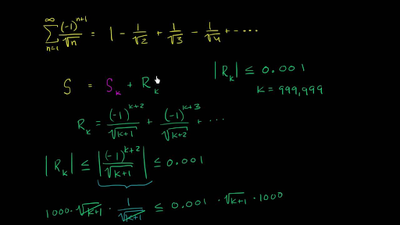 ∞
∑ (-1)^{n+1}/√n = 1 - 1/√2 + 1/√3 - 1/√4 + - ····
n=1
S = S_k + R_k
|R_k| ≤ 0.001
k = 999,999
R_k = (-1)^{k+2}/√(k+1) + (-1)^{k+3}/√(k+2) + ···
|R_k| ≤ |(-1)^{k+2}/√(k+1)| ≤ 0.001
1000 · √(k+1) · 1/√(k+1) ≤ 0.001 · √(k+1) · 1000